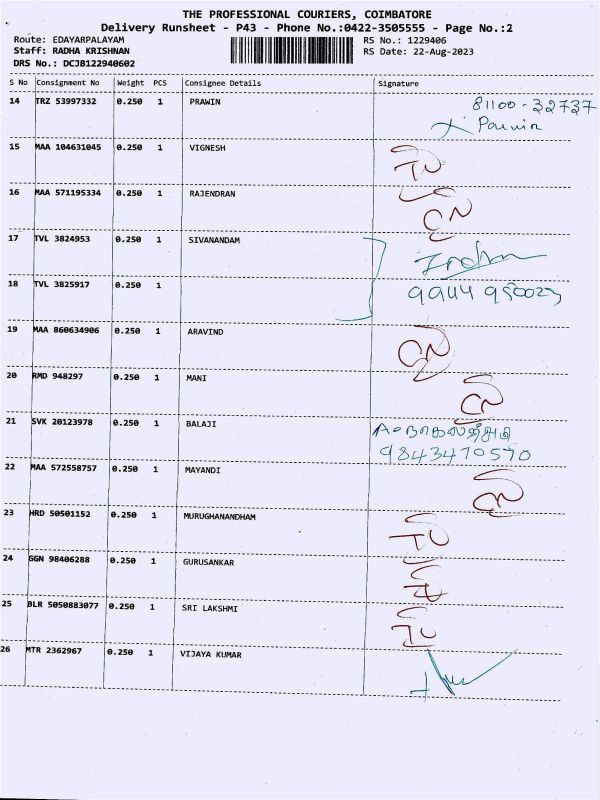 THE PROFESSIONAL COURIERS, COIMBATORE
Delivery Runsheet - P43 - Phone No.:0422-3505555 - Page No.:2
Route: EDAYARPALAYAM RS No.: 1229406
Staff: RADHA KRISHNAN RS Date: 22-Aug-2023
DRS No.: DCJB122940602
S No Consignment No Weight PCS Consignee Details Signature
14 TRZ 53997332 0.250 1 PRAWIN 81100-32737
15 MAA 104631045 0.250 1 VIGNESH
16 MAA 571195334 0.250 1 RAJENDRAN
17 TVL 3824953 0.250 1 SIVANANDAM
18 TVL 3825917 0.250 1
19 MAA 860634906 0.250 1 ARAVIND
20 RMD 948297 0.250 1 MANI
21 SVK 20123978 0.250 1 BALAJI
9843470570
22 MAA 572558757 0.250 1 MAYANDI
23 HRD 50501152 0.250 1 MURUGHANANDHAM
24 GGN 98406288 0.250 1 GURUSANKAR
25 BLR 5050883077 0.250 1 SRI LAKSHMI
26 MTR 2362967 0.250 1 VIJAYA KUMAR